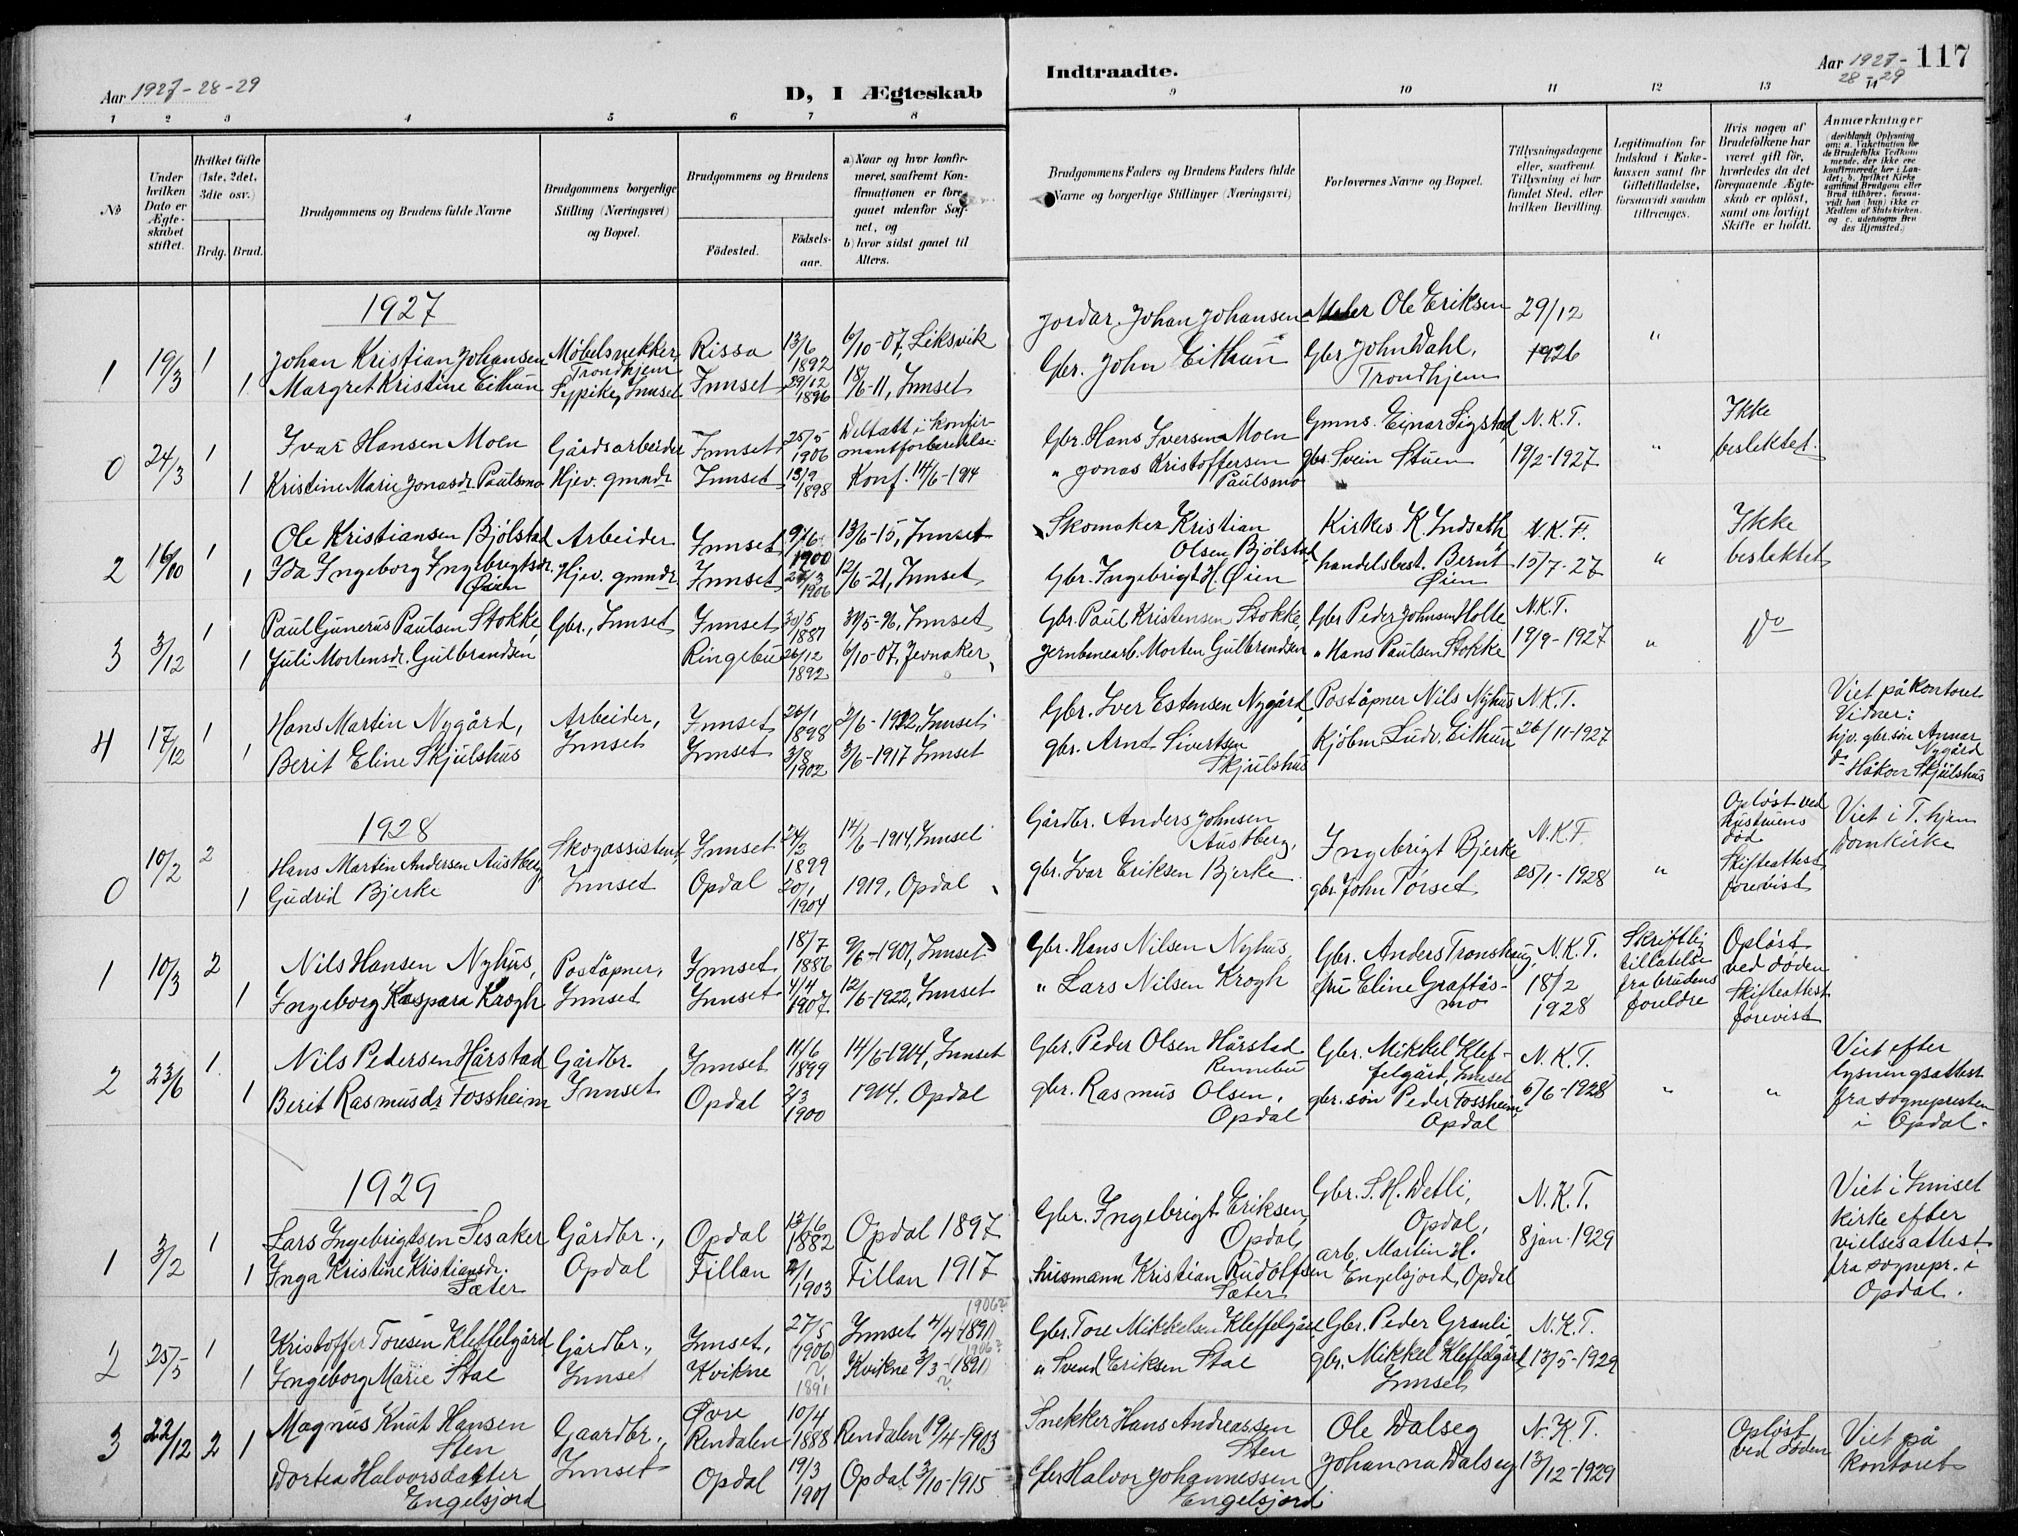 Aar 1927-28-29
D, I Ægteskab
Indtraadte.
Aar 1927-
28-29
117
1 2 3 4 5 6 7 8 9 10 11 12 13 14
No
Under hvilken Dato er Ægteskabet stiftet.
Hvilket Gifte (1ste, 2det, 3die osv.)
Brdg. Brud.
Brudgommens og Brudens fulde Navne
Brudgommens borgerlige Stilling (Næringsvei) og Bopæl.
Brudgommens og Brudens
Födested.
Födselsaar.
a) Naar og hvor konfirmeret, saafremt Konfirmationen er foregaaet udenfor Sognet, og
b) hvor sidst gaaet til Alters.
Brudgommens Faders og Brudens Faders fulde Navne og borgerlige Stillinger (Næringsvei)
Forlovernes Navne og Bopæl.
Tillysningsdagene eller, saafremt Tillysning ei har fundet Sted, efter hvilken Bevilling.
Legitimation for Indskud i Enkekassen samt for Giftetilladelse, forsaavidt saadan tiltrænges.
Hvis nogen af Brudefolkene har været gift før, hvorledes da det foregaaende Ægteskab er oplöst, samt om lovligt Skifte er holdt.
Anmærkninger
(deriblandt Oplysning om: a. Vakcination for de Brudefolks Vedkommende, der ikke ere konfirmerede her i Landet; b. hvilket Kirkesamfund Brudgom eller Brud tilhörer, forsaavidt han (hun) ikke er Medlem af Statskirken, og c. udensogns Brudes Hjemsted.)
1927
1 19/3 1 Johan Kristian Johansen Møbelsnekker, Trondhjem Rissa 13/6 1892 6/10-07, Leksvik Jordar. Johan Johansen Maler Ole Eriksen 29/12 "
1 Margret Kristine Eithun Sypike, Innset Innset 29/12 1896 18/6-11, Innset Gbr. John Eithun Gbr John Dahl, Trondhjem 1926
0 24/3 1 Ivar Hansen Moen Gårdsarbeider Innset 25/5 1906 Deltatt i konfirmantforberedelse Gbr. Hans Iversen Moen Gmns. Einar Sigstad N.K.T. " Ikke
1 Kristine Marie Jonasdr. Paulsmo Hjev. gmndr Innset 13/9 1898 Konf. 14/6-1914 " Jonas Kristoffersen Paulsmo gbr. Svein Stuen 19/2-1927 beslektet.
2 16/10 1 Ole Kristiansen Bjølstad Arbeider Innset 9/6 1900 13/6-15, Innset Skomaker Kristian Olsen Bjølstad Kirkes. K. Indseth N.K.T. " Ikke
1 Ida Ingeborg Ingebrigtsdr. Øien Hjev. gmndr. Innset 27/3 1906 12/6-21, Innset Gbr. Ingebrigt H. Øien handelsbest. Bernt Øien 15/7-27 beslektet
3 3/12 1 Paul Gunerus Paulsen Stokke Gbr., Innset Innset 30/5 1887 31/5-96, Innset Gbr. Paul Kristensen Stokke, Gbr Peder Johnsen Holte N.K.T. " Do
1 Juli Mortensdr. Gulbrandsen Ringebu 26/12 1892 6/10-07, Jevnaker Jernbanearb. Morten Gulbrandsen " Hans Paulsen Stokke 19/9-1927
4 17/12 1 Hans Martin Nygård, Arbeider, Innset 26/1 1898 2/6-1912, Innset Gbr. Iver Estensen Nygård, Poståpner Nils Nyhus N.K.T. Viet på kontoret
1 Berit Eline Skjulshus Innset Innset 3/8 1902 3/6-1917 Innset gbr. Arnt Sivertsen Skjulshus Kjøbm Ludv. Eithun 26/11-1927 Vidner: hjv. gbr.søn Annar Nygård do Håkon Skjulshus
1928
0 10/2 2 Hans Martin Andersen Austberg, Skogassistent, Innset 24/2 1899 14/6-1914, Innset Gårdbr. Anders Johnsen Austberg, Ingebrigt Bjerke N.K.T. " Opløst ved hustruens død Viet i T.hjem Domkirke
1 Gudrid Bjerke Innset Opdal 20/1 1904 1919, Opdal gbr. Ivar Eriksen Bjerke gbr. John Tørset 25/1-1928 Skifteattest forevist
1 10/3 2 Nils Hansen Nyhus, Poståpner, Innset 18/7 1886 9/6-1901, Innset Gbr. Hans Nilsen Nyhus, Gbr. Anders Tronshaug, N.K.T. Skriftlig tillatelse fra brudens foreldre Opløst ved døden
1 Ingeborg Kaspara Krogh Innset Innset 4/4 1907 12/6-1922, Innset " Lars Nilsen Krogh fru Eline Graftåsmo 18/2 1928 Skifteattest forevist
2 23/6 1 Nils Pedersen Hårstad Gårdbr. Innset 11/6 1899 14/6-1914, Innset Gbr. Peder Olsen Hårstad Rennebu Gbr. Mikkel Kleffelgård, Innset N.K.T. " " Viet efter lysningsattest fra sognepresten i Opdal.
1 Berit Rasmusdr Fossheim Innset Opdal 2/3 1900 1914, Opdal gbr. Rasmus Olsen, Opdal gbr. søn Peder Fossheim Opdal 6/6-1928
1929
1 3/2 1 Lars Ingebrigtsen Sesaker Gårdbr., Opdal 13/6 1882 Opdal 1897 Gbr. Ingebrigt Eriksen, Opdal, Gbr. S. H. Detli, Opdal, N.K.T. Viet i Innset kirke efter vielsesattest fra sognepr. i Opdal.
1 Inga Kristine Kristiansdr. Sæter Opdal Fillan 2/1 1903 Fillan 1917 husmann Kristian Rudolfsen Sæter arb. Martin H. Engelsjord, Opdal 8 jan. 1929
2 25/5 1 Kristoffer Toresen Kleffelgård Gårdbr., Innset, 27/5 (1906) Innset 4/4-1891) 1906? Gbr. Tore Mikkelsen Kleffelgård Gbr. Peder Granli N.K.T.
1 Ingeborg Marie Stae Innset Kvikne ? 1891 Kvikne 3/3-(1891) 1906? " Svend Eriksen Stae gbr. Mikkel Kleffelgård, Innset 13/5-1929
3 22/12 2 1 Magnus Knut Hansen Sten Gaardbr., Øvre Rendalen 10/4 1888 Rendalen 19/4-1903 Snekker Hans Andreassen Sten Ole Dalseg N.K.T. Opløst ved døden Viet på kontoret
Dortea Halvorsdatter Engelsjord Innset Opdal 19/3 1901 Opdal 3/10-1915 Gbr Halvor Johannessen Engelsjord Johanna Dalseg 13/12-1929